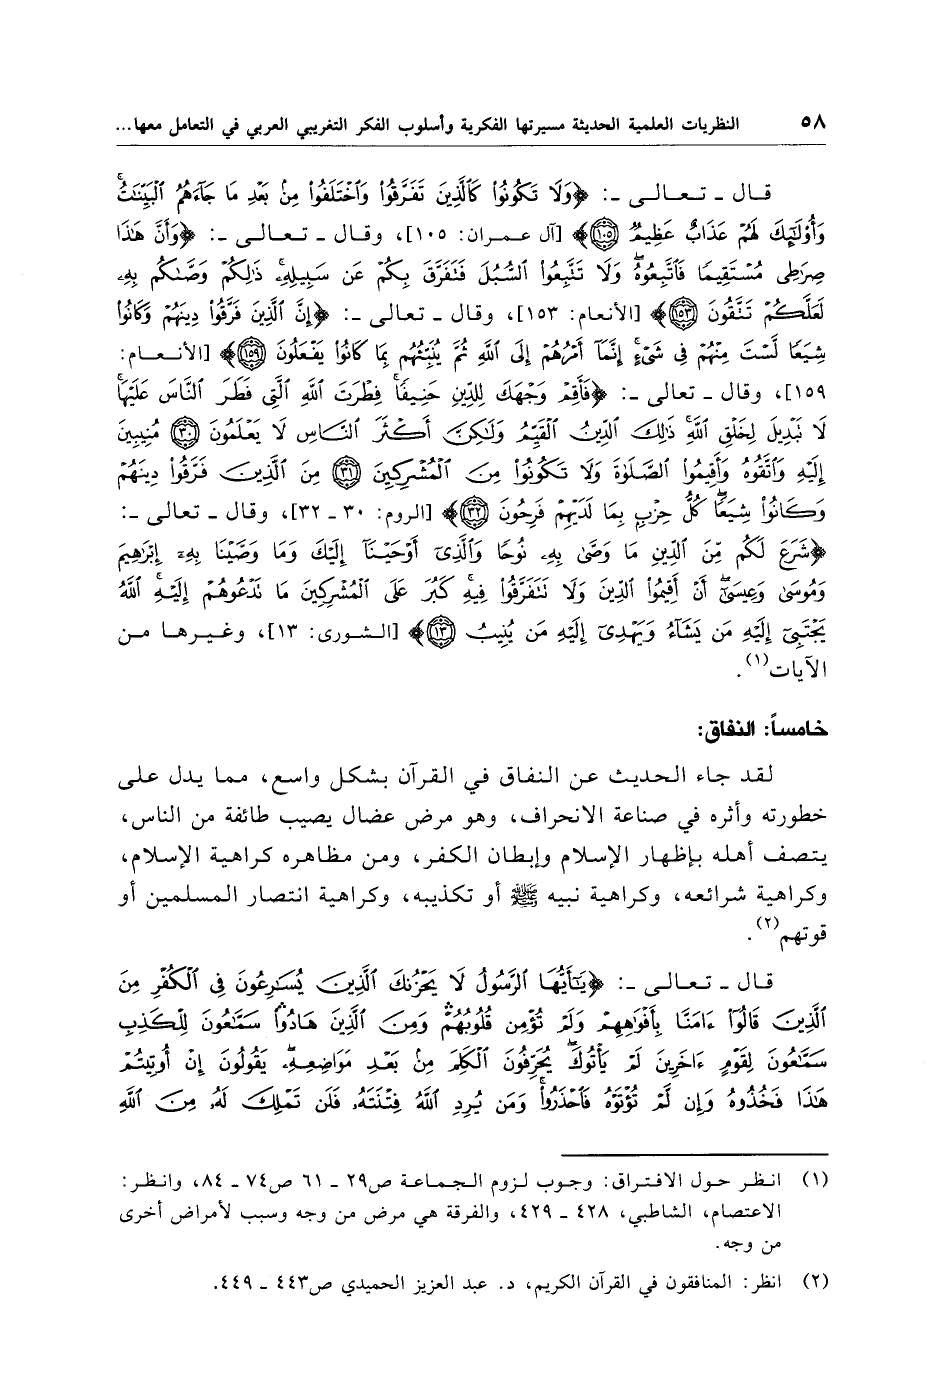 ٥٨ النظريات العلمية الحديثة مسيرتها الفكرية وأسلوب الفكر التغريبي العربي في التعامل معها...
قال ـ تـعـالـى ـ: ﴿وَلَا تَكُونُوا۟ كَٱلَّذِينَ تَفَرَّقُوا۟ وَٱخْتَلَفُوا۟ مِنۢ بَعْدِ مَا جَآءَهُمُ ٱلْبَيِّنَـٰتُ ۚ
وَأُو۟لَـٰٓئِكَ لَهُمْ عَذَابٌ عَظِيمٌ ١٠٥﴾ [آل عـمـران: ١٠٥]، وقـال ـ تـعـالـى ـ: ﴿وَأَنَّ هَـٰذَا
صِرَٰطِى مُسْتَقِيمًا فَٱتَّبِعُوهُ ۖ وَلَا تَتَّبِعُوا۟ ٱلسُّبُلَ فَتَفَرَّقَ بِكُمْ عَن سَبِيلِهِۦ ۚ ذَٰلِكُمْ وَصَّىٰكُم بِهِۦ
لَعَلَّكُمْ تَتَّقُونَ ١٥٣﴾ [الأنعام: ١٥٣]، وقال ـ تعالى ـ: ﴿إِنَّ ٱلَّذِينَ فَرَّقُوا۟ دِينَهُمْ وَكَانُوا۟
شِيَعًا لَّسْتَ مِنْهُمْ فِى شَىْءٍ ۚ إِنَّمَآ أَمْرُهُمْ إِلَى ٱللَّهِ ثُمَّ يُنَبِّئُهُم بِمَا كَانُوا۟ يَفْعَلُونَ ١٥٩﴾ [الأنـعـام:
١٥٩]، وقال ـ تعالى ـ: ﴿فَأَقِمْ وَجْهَكَ لِلدِّينِ حَنِيفًا ۚ فِطْرَتَ ٱللَّهِ ٱلَّتِى فَطَرَ ٱلنَّاسَ عَلَيْهَا ۚ
لَا تَبْدِيلَ لِخَلْقِ ٱللَّهِ ۚ ذَٰلِكَ ٱلدِّينُ ٱلْقَيِّمُ وَلَـٰكِنَّ أَكْثَرَ ٱلنَّاسِ لَا يَعْلَمُونَ ٣٠ مُنِيبِينَ
إِلَيْهِ وَٱتَّقُوهُ وَأَقِيمُوا۟ ٱلصَّلَوٰةَ وَلَا تَكُونُوا۟ مِنَ ٱلْمُشْرِكِينَ ٣١ مِنَ ٱلَّذِينَ فَرَّقُوا۟ دِينَهُمْ
وَكَانُوا۟ شِيَعًا ۖ كُلُّ حِزْبٍۭ بِمَا لَدَيْهِمْ فَرِحُونَ ٣٢﴾ [الروم: ٣٠ ـ ٣٢]، وقال ـ تعالى ـ:
﴿شَرَعَ لَكُم مِّنَ ٱلدِّينِ مَا وَصَّىٰ بِهِۦ نُوحًا وَٱلَّذِىٓ أَوْحَيْنَآ إِلَيْكَ وَمَا وَصَّيْنَا بِهِۦٓ إِبْرَٰهِيمَ
وَمُوسَىٰ وَعِيسَىٰٓ ۖ أَنْ أَقِيمُوا۟ ٱلدِّينَ وَلَا تَتَفَرَّقُوا۟ فِيهِ ۚ كَبُرَ عَلَى ٱلْمُشْرِكِينَ مَا تَدْعُوهُمْ إِلَيْهِ ۚ ٱللَّهُ
يَجْتَبِىٓ إِلَيْهِ مَن يَشَآءُ وَيَهْدِىٓ إِلَيْهِ مَن يُنِيبُ ١٣﴾ [الـشـورى: ١٣]، وغـيـرهـا مـن
الآيات(١).
خامساً: النفاق:
لقد جاء الحديث عن النفاق في القرآن بشكل واسع، مما يدل على
خطورته وأثره في صناعة الانحراف، وهو مرض عضال يصيب طائفة من الناس،
يتصف أهله بإظهار الإسلام وإبطان الكفر، ومن مظاهره كراهية الإسلام،
وكراهية شرائعه، وكراهية نبيه ﷺ أو تكذيبه، وكراهية انتصار المسلمين أو
قوتهم(٢).
قـال ـ تـعـالـى ـ: ﴿يَـٰٓأَيُّهَا ٱلرَّسُولُ لَا يَحْزُنكَ ٱلَّذِينَ يُسَـٰرِعُونَ فِى ٱلْكُفْرِ مِنَ
ٱلَّذِينَ قَالُوٓا۟ ءَامَنَّا بِأَفْوَٰهِهِمْ وَلَمْ تُؤْمِن قُلُوبُهُمْ ۛ وَمِنَ ٱلَّذِينَ هَادُوا۟ ۛ سَمَّـٰعُونَ لِلْكَذِبِ
سَمَّـٰعُونَ لِقَوْمٍ ءَاخَرِينَ لَمْ يَأْتُوكَ ۖ يُحَرِّفُونَ ٱلْكَلِمَ مِنۢ بَعْدِ مَوَاضِعِهِۦ ۖ يَقُولُونَ إِنْ أُوتِيتُمْ
هَـٰذَا فَخُذُوهُ وَإِن لَّمْ تُؤْتَوْهُ فَٱحْذَرُوا۟ ۚ وَمَن يُرِدِ ٱللَّهُ فِتْنَتَهُۥ فَلَن تَمْلِكَ لَهُۥ مِنَ ٱللَّهِ
(١) انـظـر حـول الافـتـراق: وجـوب لـزوم الـجـمـاعـة ص٢٩ ـ ٦١ ص٧٤ ـ ٨٤، وانـظـر:
الاعتصام، الشاطبي، ٤٢٨ ـ ٤٢٩، والفرقة هي مرض من وجه وسبب لأمراض أخرى
من وجه.
(٢) انظر: المنافقون في القرآن الكريم، د. عبد العزيز الحميدي ص٤٤٣ ـ ٤٤٩.